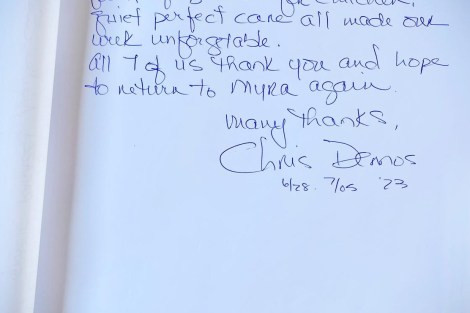 quiet perfect care all made our
week unforgetable.
All 7 of us thank you and hope
to return to Myra again.
Many thanks,
Chris Demos
6/28. 7/05 '23